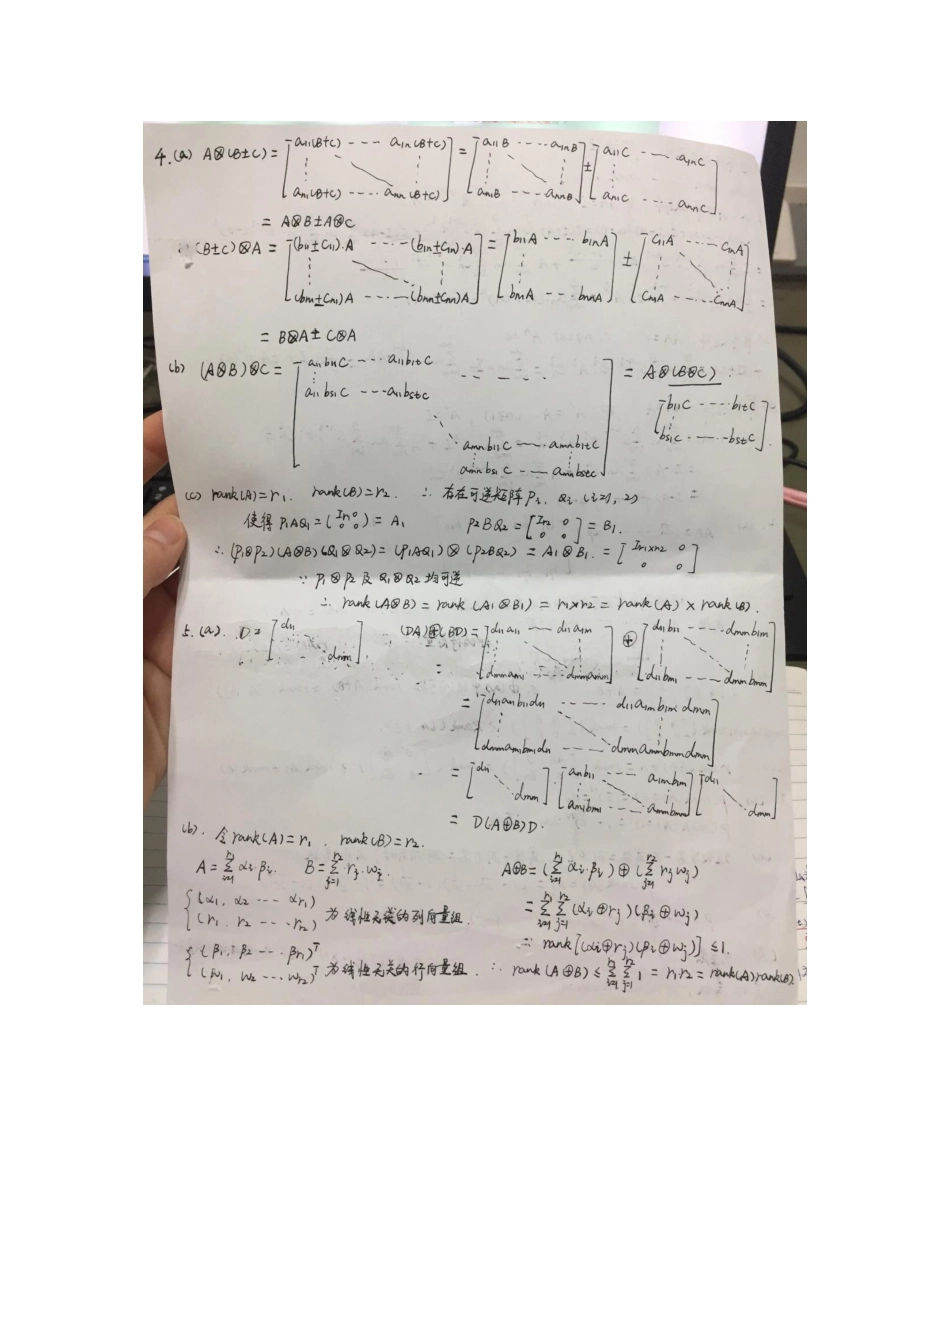 4.(a) A⊗(B±C) = [a11(B+C) --- a1n(B+C) an1(B+C) ---- ann(B+C)] = [a11B ---- a1nB an1B --- annB] ± [a11C --- a1nC an1C ---- annC]
= A⊗B±A⊗C
(B±C)⊗A = [(b11±C11)·A ---- (b1n±C1n)·A (bn1±Cn1)A ---- (bnn±Cnn)A] = [b11A ---- b1nA bn1A --- bnnA] ± [C11A ---- C1nA Cn1A ---- CnnA]
= B⊗A ± C⊗A
(b) (A⊗B)⊗C = [a11b11C --- a11b1tC a11bs1C --- a11bstC amnb11C --- amnb1tC amnbs1C --- amnbstC] = A⊗(B⊗C)
[b11C ---- b1tC bs1C ---- bstC].
(c) rank(A)=r1. rank(B)=r2. ∴ 存在可逆矩阵Pi. Qi (i=1, 2)
使得P1AQ1 = (Ir1 0 0 0) = A1 P2BQ2 = [Ir2 0 0 0] = B1.
∴ (P1⊗P2)(A⊗B)(Q1⊗Q2) = (P1AQ1)⊗(P2BQ2) = A1⊗B1. = [Ir1×r2 0 0 0]
∵ P1⊗P2 及 Q1⊗Q2 均可逆
∴ rank(A⊗B) = rank(A1⊗B1) = r1×r2 = rank(A)×rank(B).
5.(a). D = [d11 dmm]. (DA)⊕(BD) = [d11a11 --- d11a1m dmmam1 ---- dmmamm] ⊕ [d11b11 ---- dmmb1m d11bm1 --- dmmbmm]
= [d11a11b11d11 ---- d11a1mb1mdmm dmmam1bm1d11 ---- dmmammbmmdmm]
= [d11 dmm]·[a11b11 --- a1mb1m am1bm1 --- ammbmm][d11 dmm]
= D(A⊕B)D.
(b). 令rank(A)=r1 , rank(B)=r2.
A = Σ(i=1, r1) αi·βi. B = Σ(j=1, r2) rj·wj. A⊕B = (Σ(i=1, r1) αi·βi) ⊕ (Σ(j=1, r2) rjwj)
{(α1, α2 --- αr1) (r1, r2 --- rr2) 为线性无关的列向量组. = Σ(i=1, r1) Σ(j=1, r2) (αi⊕rj)(βi⊕wj)
∵ rank[(αi⊕rj)(βi⊕wj)] ≤ 1.
{(β1, β2 --- βr1)T (w1, w2 --- wr2)T 为线性无关的行向量组. ∴ rank(A⊕B) ≤ Σ(i=1, r1) Σ(j=1, r2) 1 = r1r2 = rank(A)rank(B).